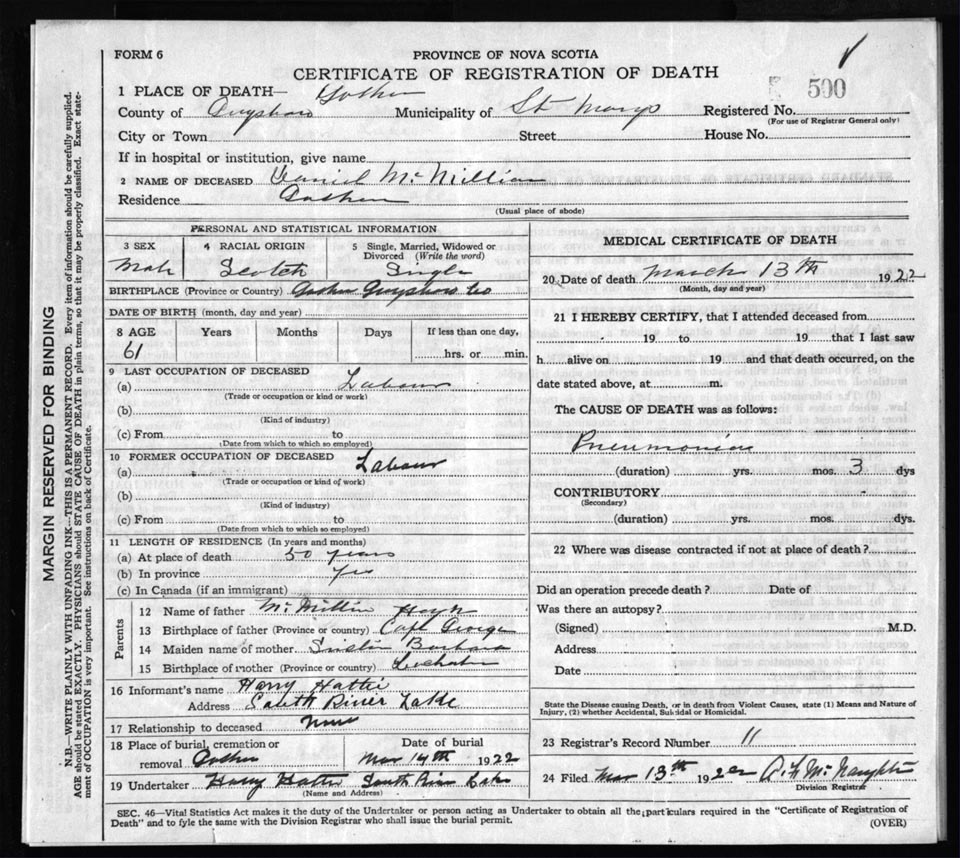 FORM 6
PROVINCE OF NOVA SCOTIA
CERTIFICATE OF REGISTRATION OF DEATH
500
1 PLACE OF DEATH— Goshen
County of Guysboro Municipality of St Marys Registered No.
(For use of Registrar General only)
City or Town Street House No.
If in hospital or institution, give name
2 NAME OF DECEASED Daniel McMillian
Residence Goshen
(Usual place of abode)
PERSONAL AND STATISTICAL INFORMATION
3 SEX Male
4 RACIAL ORIGIN Scotch
5 Single, Married, Widowed or Divorced (Write the word) Single
BIRTHPLACE (Province or Country) Goshen Guysboro Co
DATE OF BIRTH (month, day and year)
8 AGE Years Months Days If less than one day,
61 hrs. or min.
9 LAST OCCUPATION OF DECEASED
(a) Labour
(Trade or occupation or kind or work)
(b)
(Kind of industry)
(c) From to
(Date from which to which so employed)
10 FORMER OCCUPATION OF DECEASED
(a) Labour
(Trade or occupation or kind of work)
(b)
(Kind of industry)
(c) From to
(Date from which to which so employed)
11 LENGTH OF RESIDENCE (In years and months)
(a) At place of death 50 years
(b) In province yes
(c) In Canada (if an immigrant)
Parents
12 Name of father McMillin Hugh
13 Birthplace of father (Province or country) Cape George
14 Maiden name of mother Barbara
15 Birthplace of mother (Province or country) Lochaber
16 Informant's name Harry Hattie
Address South River Lake
17 Relationship to deceased None
18 Place of burial, cremation or removal Goshen
Date of burial
Mar 14th 1922
19 Undertaker Harry Hattie South River Lake
(Name and Address)
MEDICAL CERTIFICATE OF DEATH
20 Date of death March 13th 1922
(Month, day and year)
21 I HEREBY CERTIFY, that I attended deceased from
19 to 19 that I last saw
h alive on 19 and that death occurred, on the
date stated above, at m.
The CAUSE OF DEATH was as follows:
Pneumonia
(duration) yrs. mos. 3 dys
CONTRIBUTORY
(Secondary)
(duration) yrs. mos. dys.
22 Where was disease contracted if not at place of death?
Did an operation precede death? Date of
Was there an autopsy?
(Signed) M.D.
Address
Date
State the Disease causing Death, or in death from Violent Causes, state (1) Means and Nature of
Injury, (2) whether Accidental, Suicidal or Homicidal.
23 Registrar's Record Number 11
24 Filed Mar 13th 1922 McNaughton
Division Registrar
SEC. 46—Vital Statistics Act makes it the duty of the Undertaker or person acting as Undertaker to obtain all the particulars required in the "Certificate of Registration of
Death" and to fyle the same with the Division Registrar who shall issue the burial permit.
(OVER)
MARGIN RESERVED FOR BINDING
N.B.—WRITE PLAINLY WITH UNFADING INK—THIS IS A PERMANENT RECORD. Every item of information should be carefully supplied.
AGE should be stated EXACTLY. PHYSICIANS should STATE CAUSE OF DEATH in plain terms, so that it may be properly classified. Exact state-
ment of OCCUPATION is very important. See instructions on back of Certificate.